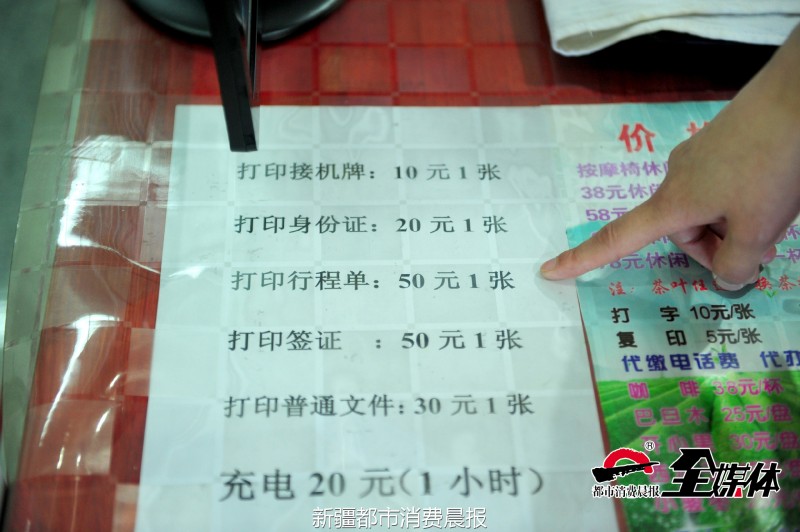 打印接机牌：10 元 1 张
打印身份证：20 元 1 张
打印行程单：50 元 1 张
打印签证 ：50 元 1 张
打印普通文件：30 元 1 张
充电 20 元（1 小时）
价
按摩椅休
38元休闲
58元
元休闲 一杯
注：茶叶任 换茶
打 字 10元/张
复 印 5元/张
代缴电话费 代办
咖 啡 38元/杯
巴旦木 25元/盘
开心果 30元/
都市消费晨报
全媒体
新疆都市消费晨报